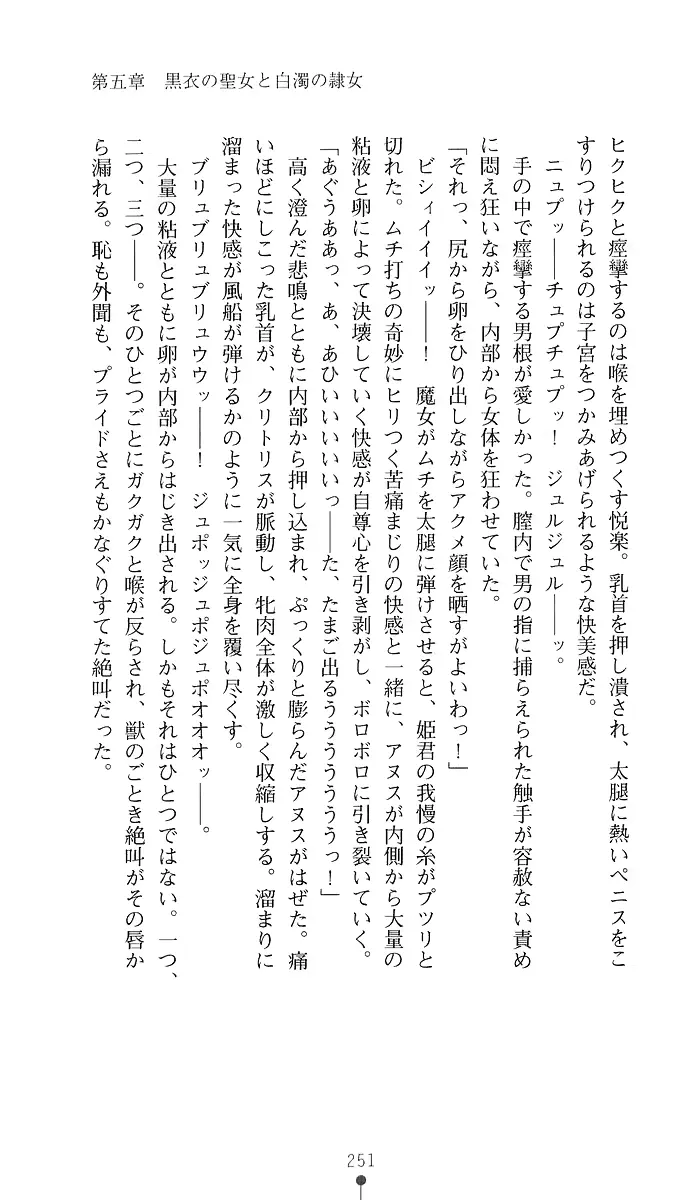 第五章　黒衣の聖女と白濁の隷女
ヒクヒクと痙攣するのは喉を埋めつくす悦楽。乳首を押し潰され、太腿に熱いペニスをこ
すりつけられるのは子宮をつかみあげられるような快美感だ。
　ニュプッ――チュプチュプッ！　ジュルジュル――ッ。
　手の中で痙攣する男根が愛しかった。膣内で男の指に捕らえられた触手が容赦ない責め
に悶え狂いながら、内部から女体を狂わせていた。
「それっ、尻から卵をひり出しながらアクメ顔を晒すがよいわっ！」
　ビシィイイイッ――！　魔女がムチを太腿に弾けさせると、姫君の我慢の糸がプツリと
切れた。ムチ打ちの奇妙にヒリつく苦痛まじりの快感と一緒に、アヌスが内側から大量の
粘液と卵によって決壊していく快感が自尊心を引き剥がし、ボロボロに引き裂いていく。
「あぐうああっ、あ、あひいいいいいっ――た、たまご出るうううううううっ！」
　高く澄んだ悲鳴とともに内部から押し込まれ、ぷっくりと膨らんだアヌスがはぜた。痛
いほどにしこった乳首が、クリトリスが脈動し、牝肉全体が激しく収縮しする。溜まりに
溜まった快感が風船が弾けるかのように一気に全身を覆い尽くす。
　ブリュブリュブリュウウッ――！　ジュポッジュポジュポオオオッ――。
　大量の粘液とともに卵が内部からはじき出される。しかもそれはひとつではない。一つ、
二つ、三つ――。そのひとつごとにガクガクと喉が反らされ、獣のごとき絶叫がその唇か
ら漏れる。恥も外聞も、プライドさえもかなぐりすてた絶叫だった。
251